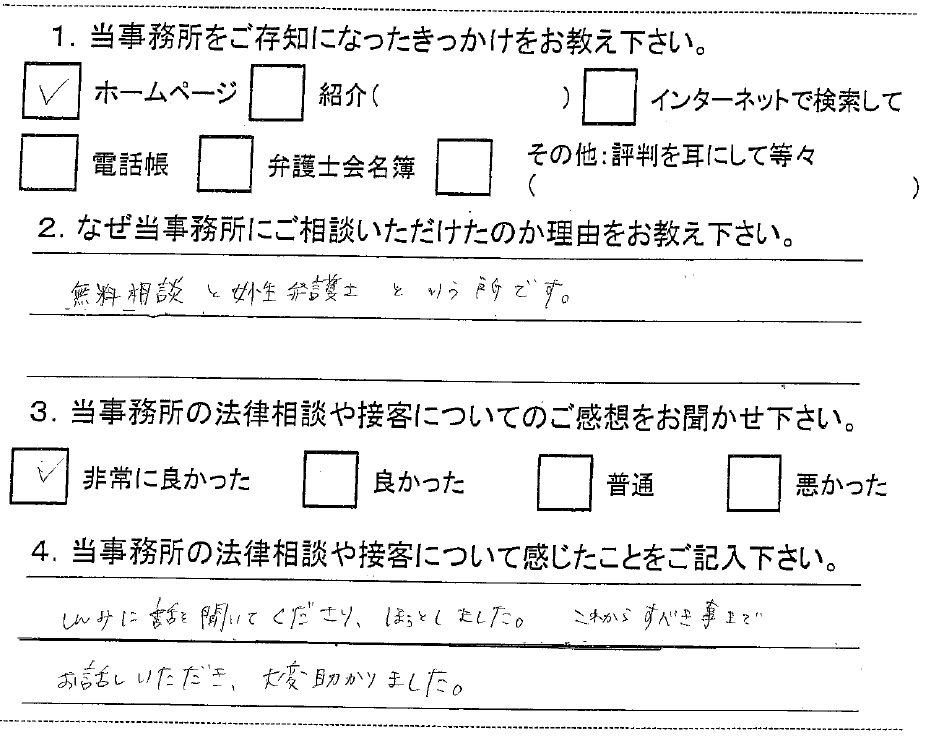 1. 当事務所をご存知になったきっかけをお教え下さい。
✓ ホームページ 紹介( ) インターネットで検索して
電話帳 弁護士会名簿 その他:評判を耳にして等々
( )
2. なぜ当事務所にご相談いただけたのか理由をお教え下さい。
無料相談と女性弁護士という所です。
3. 当事務所の法律相談や接客についてのご感想をお聞かせ下さい。
✓ 非常に良かった 良かった 普通 悪かった
4. 当事務所の法律相談や接客について感じたことをご記入下さい。
しんみに話を聞いてくださり、ほっとしました。 これからすべき事まで
お話しいただき、大変助かりました。